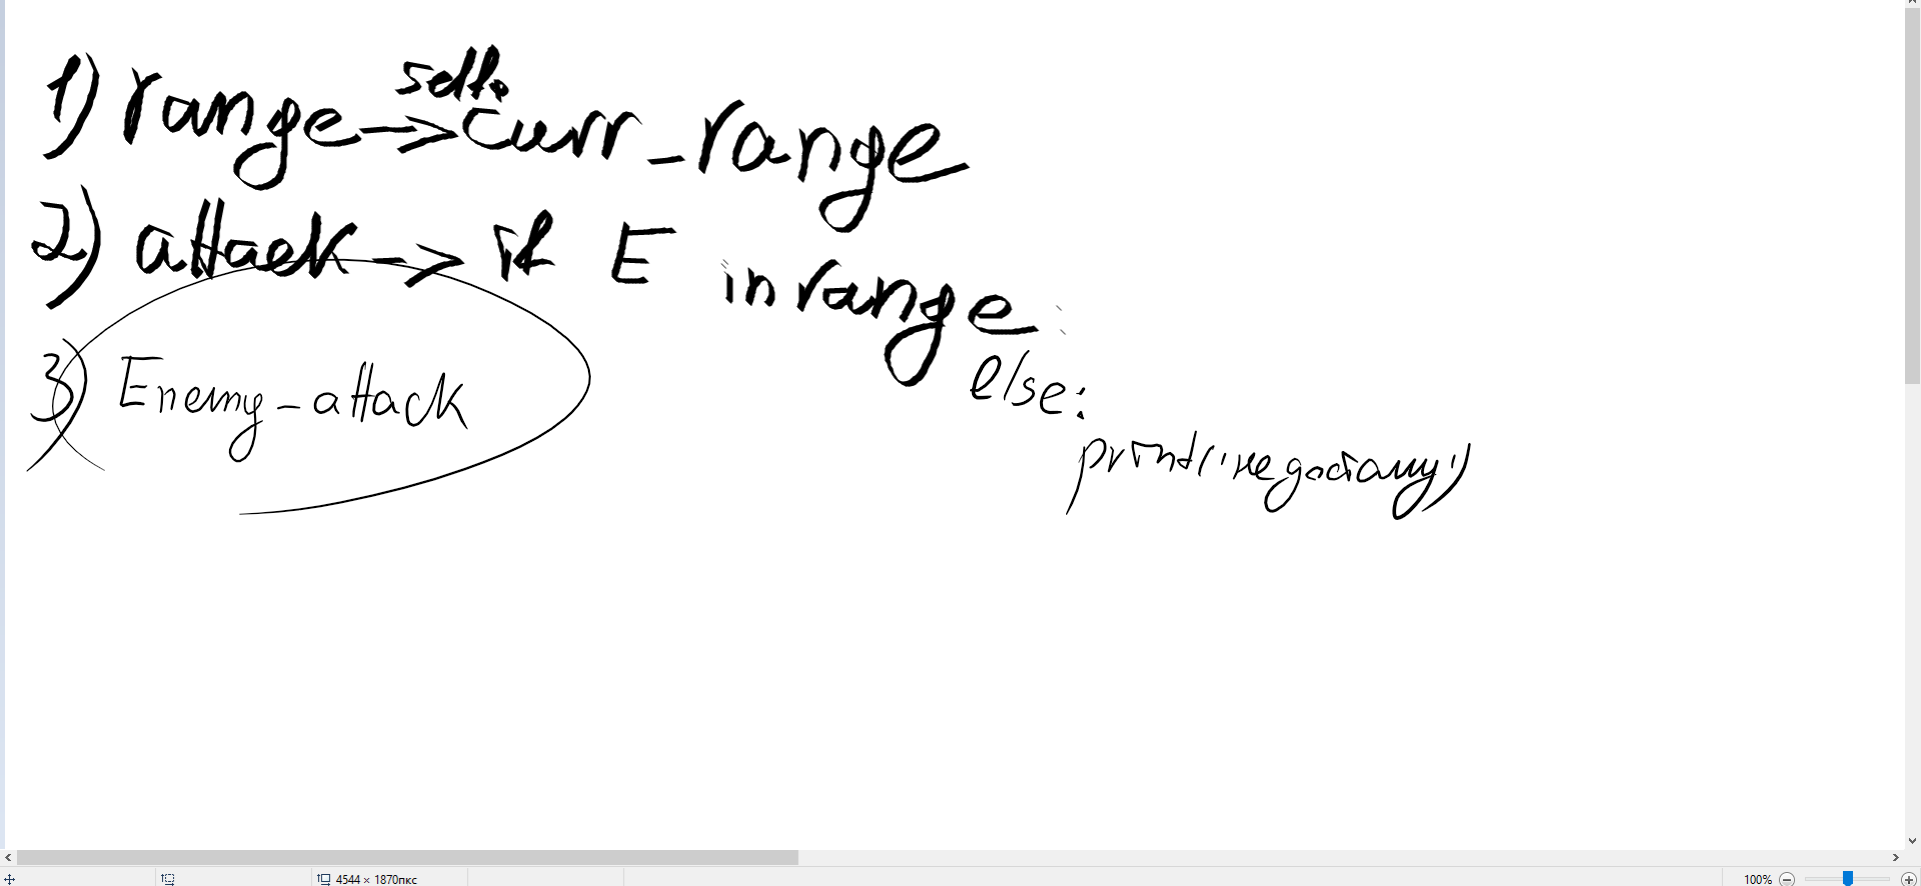 1) range -> self.curr_range
2) attack -> if E in range:
else:
print('не достану')
3) Enemy_attack
4544 × 1870пкс
100%